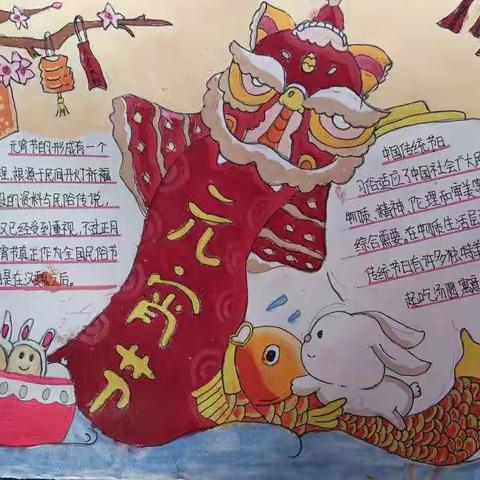 元宵节的形成有一个
程,根源于民间开灯祈福
的资料与民俗传说,
已经受到重视,不过正月
宵节真正作为全国民俗节
是在汉魏之后。
元
中国传统节日
习俗适应了中国社会广大
物质、精神、伦理和审美
综合需要。在物质生活层
传统节日有许多独特美
起吃汤圆,寓意